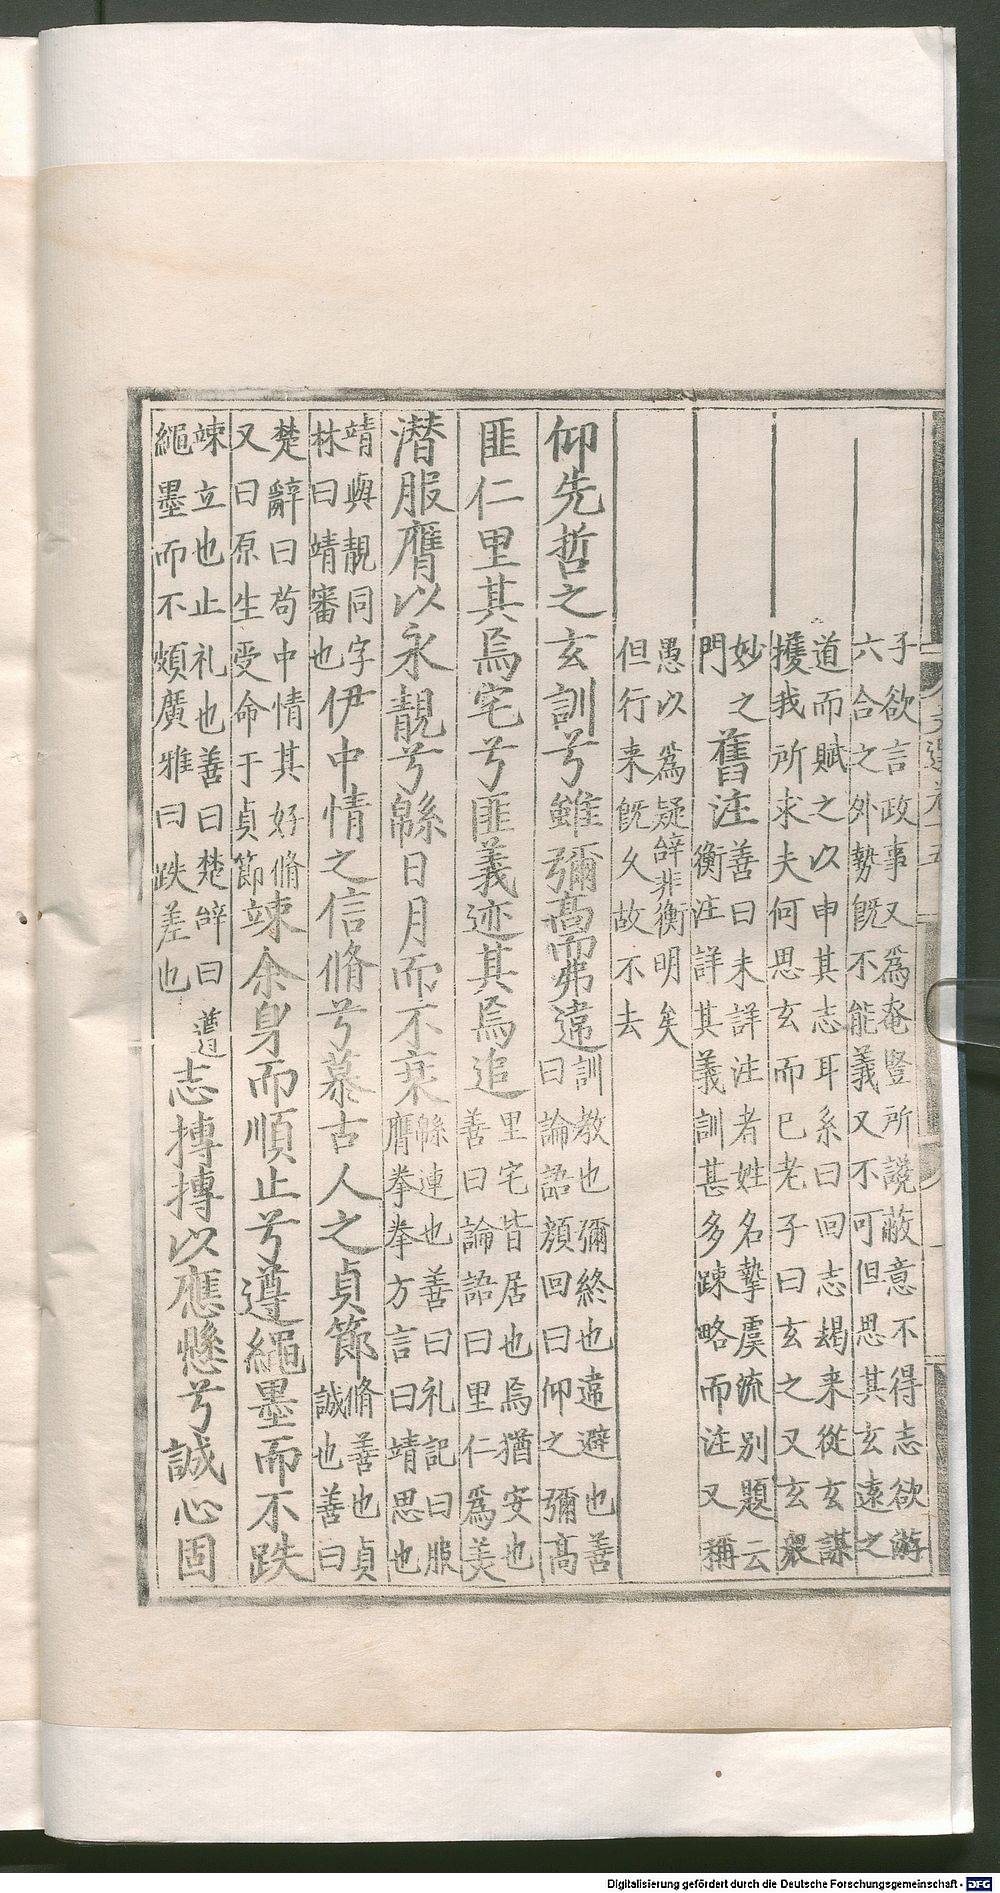 子欲言政事又爲奄豎所讒蔽意不得志欲游
六合之外勢旣不能義又不可但思其玄遠之
道而賦之以申其志耳系曰回志朅来從玄謀
攫我所求夫何思玄而已老子曰玄之又玄衆
妙之
門
舊注
善曰未詳注者姓名摯虞流别題云
衡注詳其義訓甚多踈略而注又稱
愚以爲疑辝非衡明矣
但行来旣久故不去
仰先哲之玄訓兮雖彌高而弗違
訓教也彌終也違避也善
曰論語顔回曰仰之彌高
匪仁里其焉宅兮匪義迹其焉追
里宅皆居也焉猶安也
善曰論語曰里仁爲美
潜服膺以永靚兮緜日月而不衰
緜連也善曰礼記曰服
膺拳拳方言曰靖思也
靖與靚同字
林曰靖審也
伊中情之信脩兮慕古人之貞節
脩善也貞
誠也善曰
楚辭曰苟中情其好脩
又曰原生受命于貞節
竦余身而順止兮遵繩墨而不跌
竦立也止礼也善曰楚辝曰遵
繩墨而不頗廣雅曰跌差也
志摶摶以應懸兮誠心固
Digitalisierung gefördert durch die Deutsche Forschungsgemeinschaft - DFG